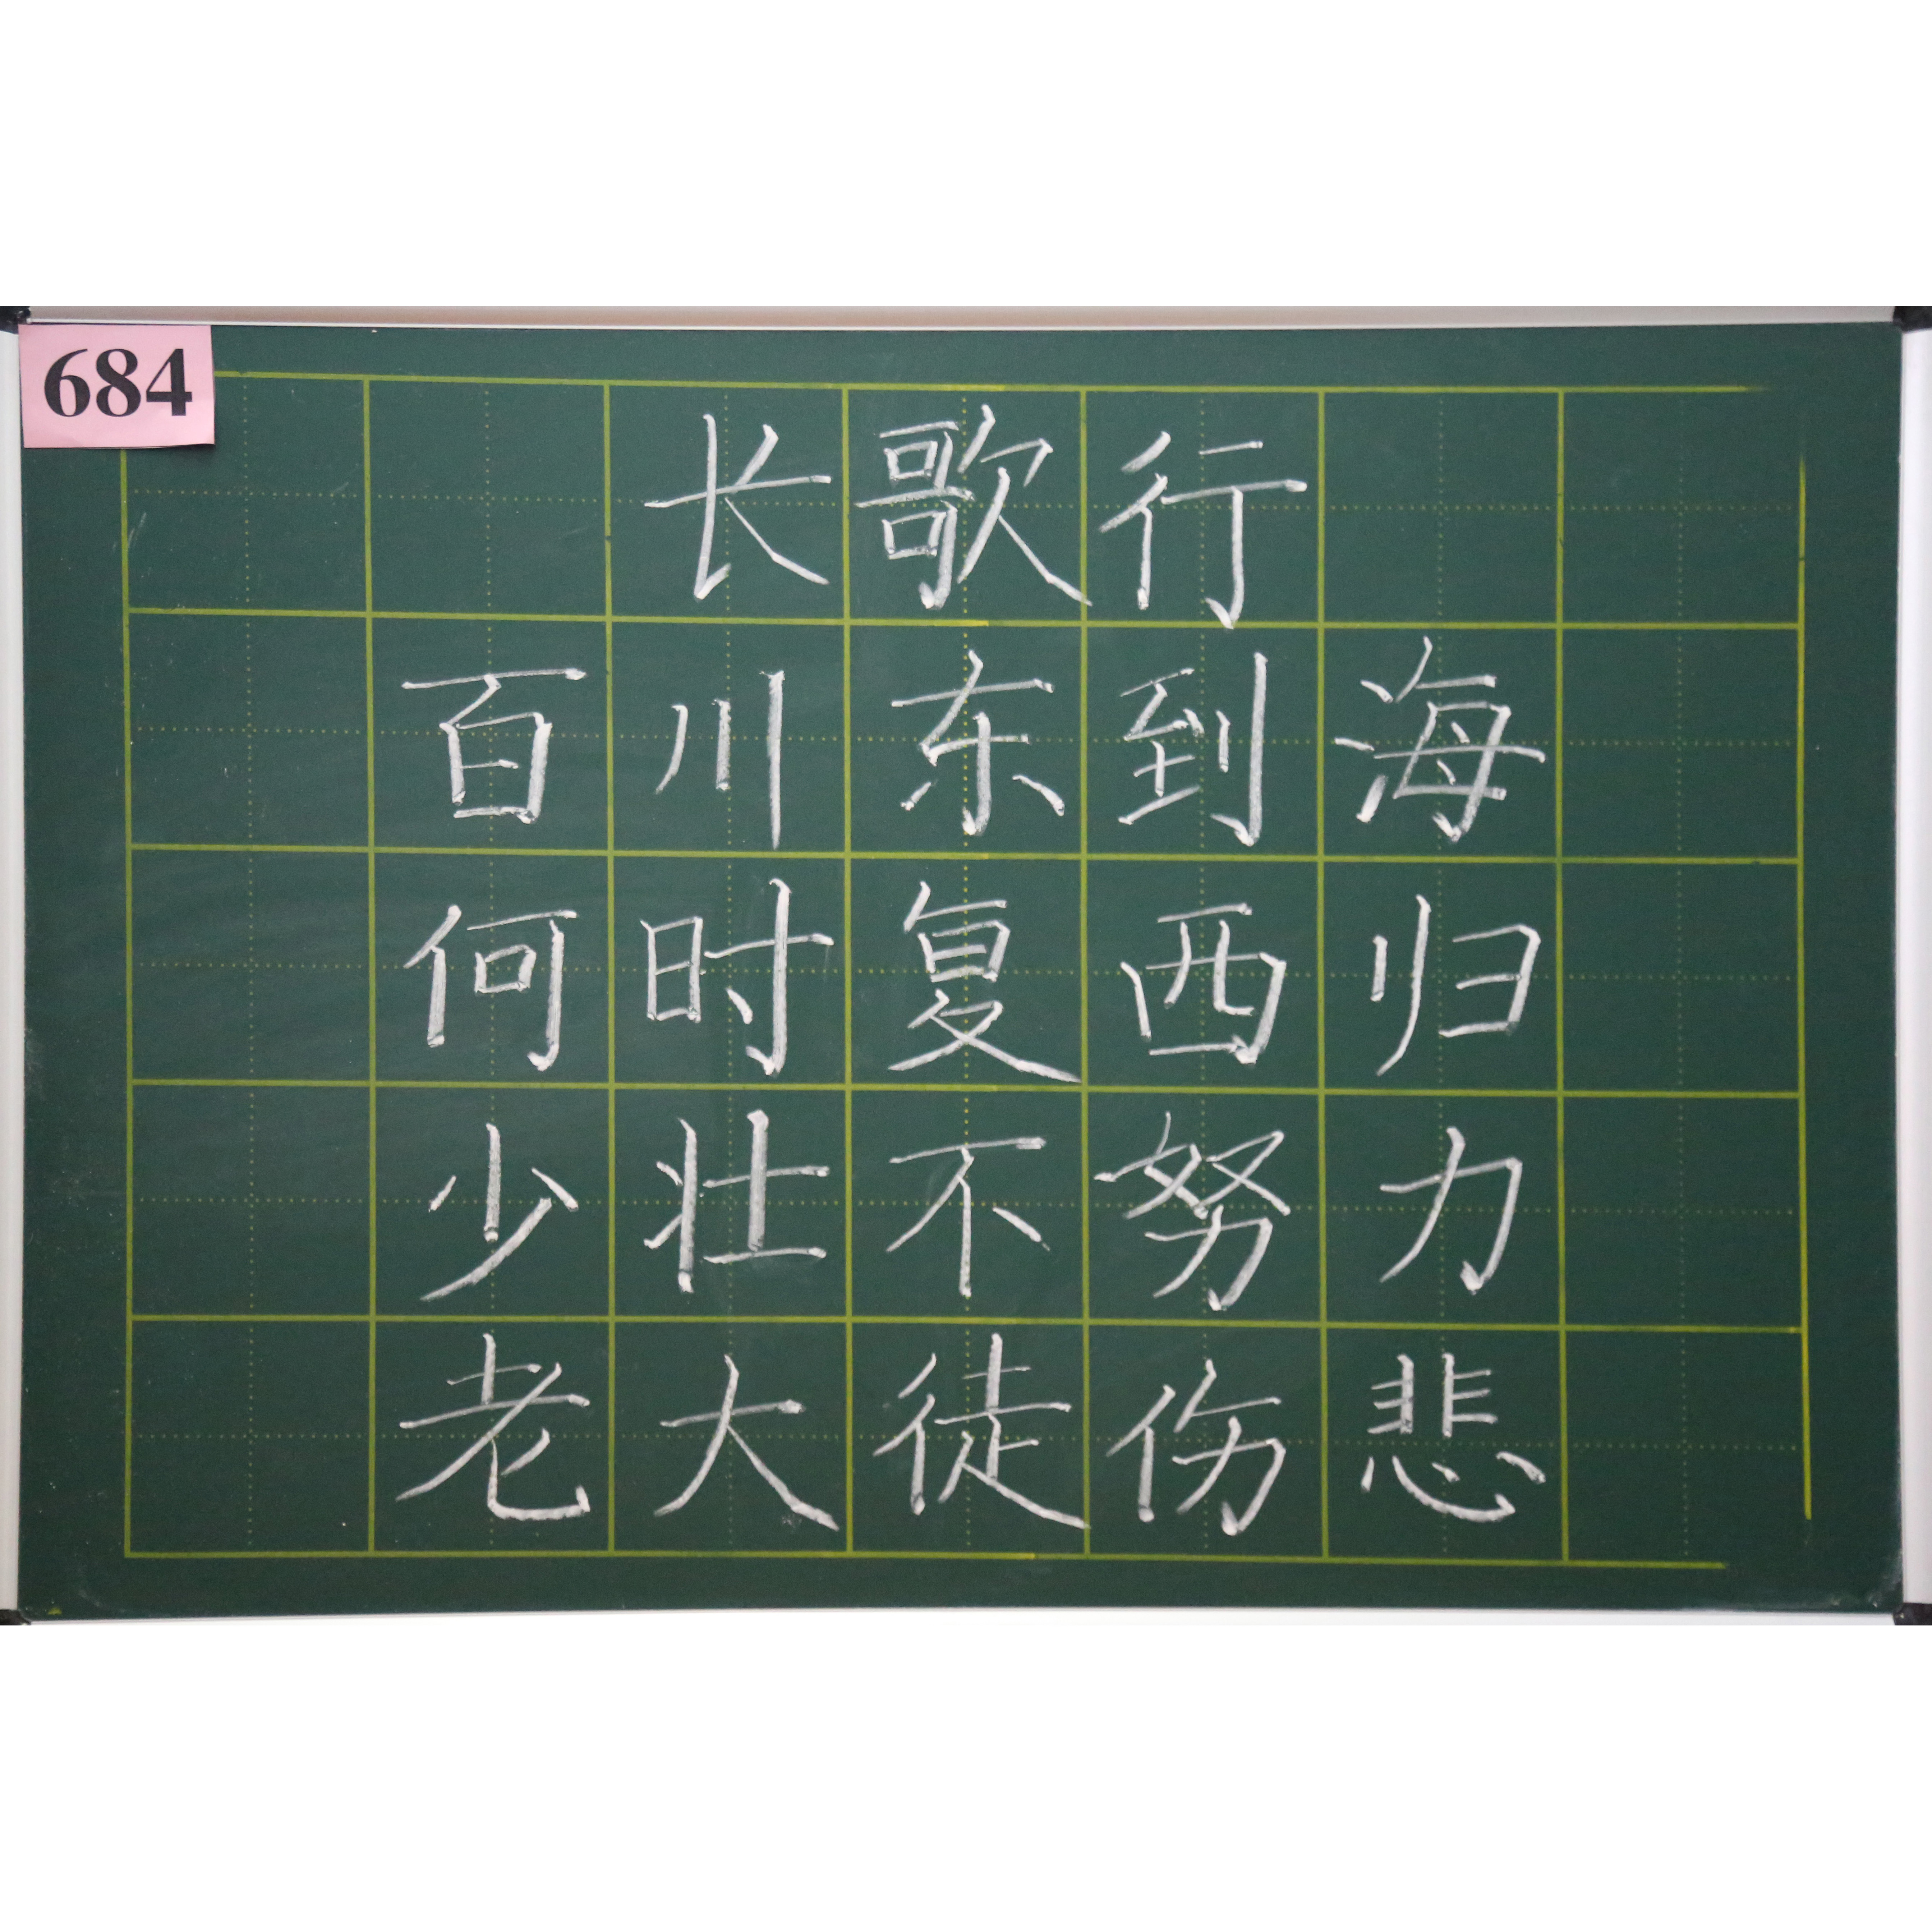 684
长歌行
百川东到海
何时复西归
少壮不努力
老大徒伤悲